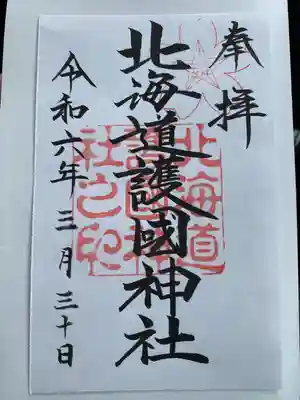 奉拝
北海道護國神社
北海道護國神社之印
令和六年三月三十日